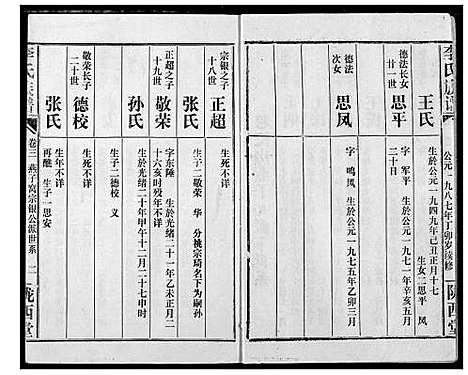 李氏族谱
公元一九八七年丁卯岁续修
陇西堂
王氏
生於公元一九四九年己丑正月十七
生女二思平 凤
德法长女
廿一世
思平
字 军平 生於公元一九七一年辛亥五月
二十日
德法
次女
思凤
字 鸣凤 生於公元一九七五年乙卯三月
宗银之子
十八世
正超
生死不详
张氏
生于二敬荣 华 分桃宗荫名下为嗣孙
正超之子
十九世
敬荣
字东陲 生於光绪二十一年乙未正月二
十六亥时殁年不详
孙氏
生於光绪二十年甲午十二月二十七申时
生子二德校 义
敬荣长子
二十世
德校
生死不详
张氏
生年不详
再醮 生子一思安
李氏族谱
卷三 燕子窝宗银公派世系 二
陇西堂